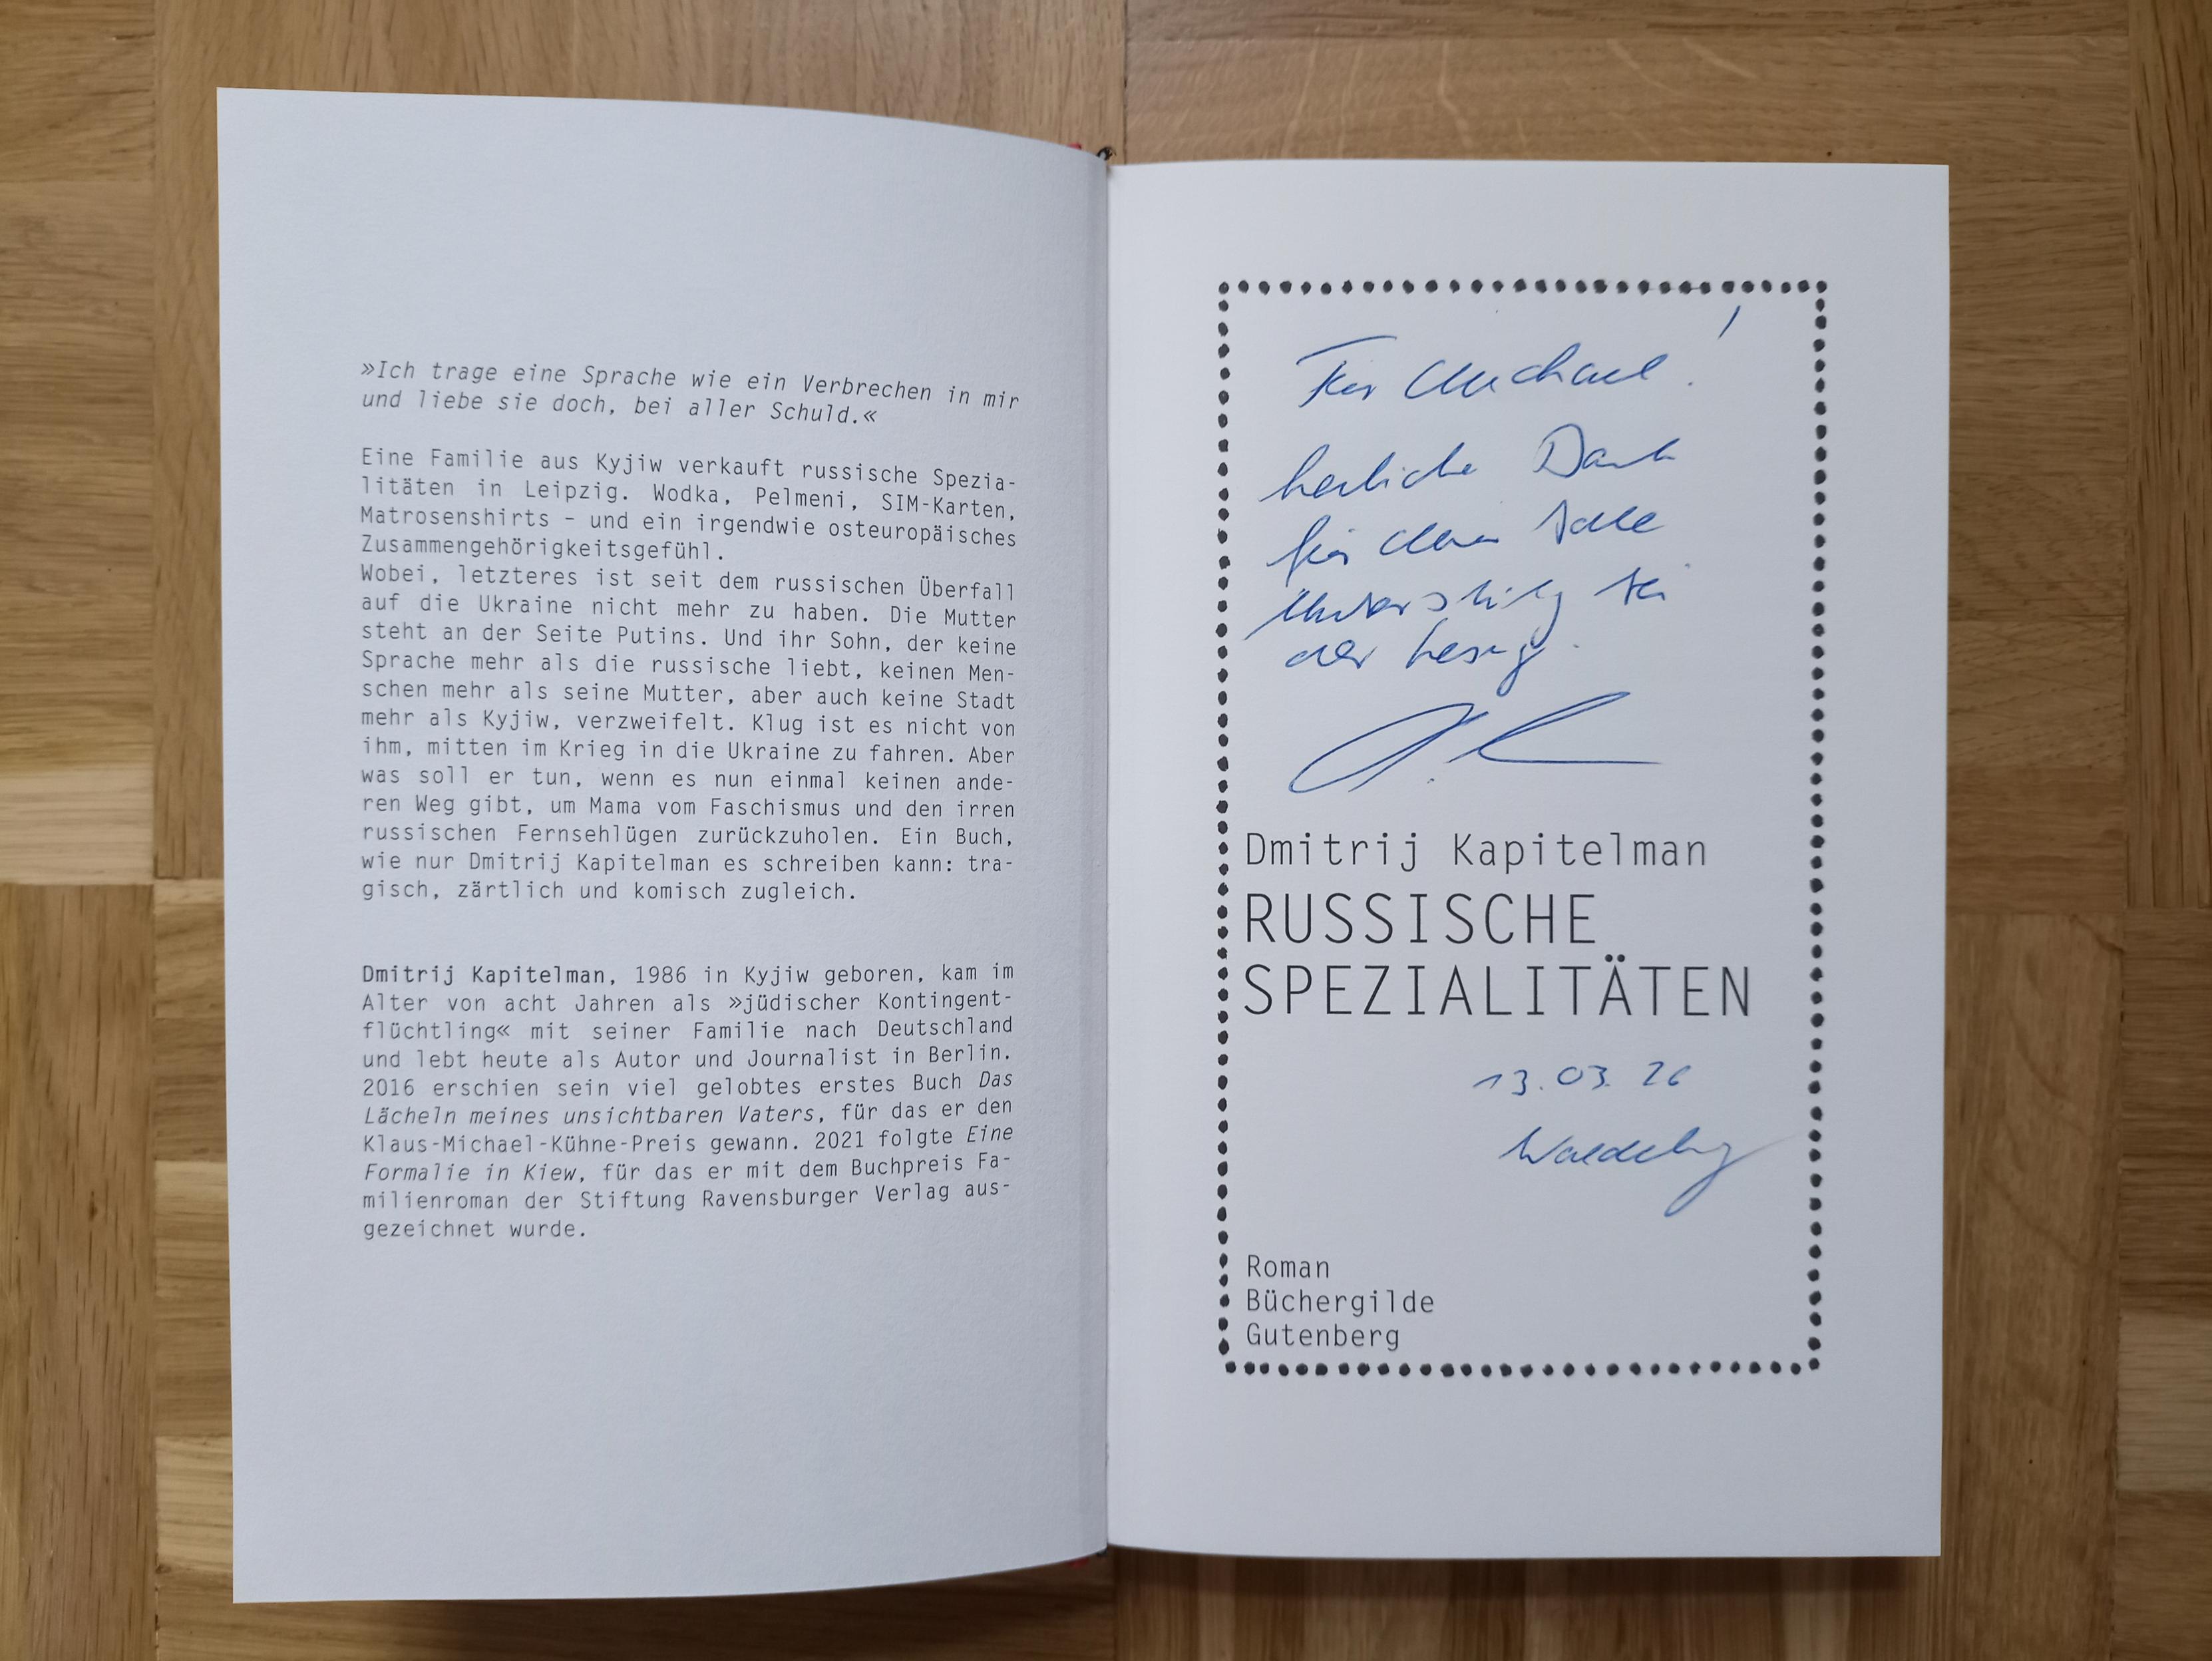 »Ich trage eine Sprache wie ein Verbrechen in mir
und liebe sie doch, bei aller Schuld.«
Eine Familie aus Kyjiw verkauft russische Spezia-
litäten in Leipzig. Wodka, Pelmeni, SIM-Karten,
Matrosenshirts – und ein irgendwie osteuropäisches
Zusammengehörigkeitsgefühl.
Wobei, letzteres ist seit dem russischen Überfall
auf die Ukraine nicht mehr zu haben. Die Mutter
steht an der Seite Putins. Und ihr Sohn, der keine
Sprache mehr als die russische liebt, keinen Men-
schen mehr als seine Mutter, aber auch keine Stadt
mehr als Kyjiw, verzweifelt. Klug ist es nicht von
ihm, mitten im Krieg in die Ukraine zu fahren. Aber
was soll er tun, wenn es nun einmal keinen ande-
ren Weg gibt, um Mama vom Faschismus und den irren
russischen Fernsehlügen zurückzuholen. Ein Buch,
wie nur Dmitrij Kapitelman es schreiben kann: tra-
gisch, zärtlich und komisch zugleich.
Dmitrij Kapitelman, 1986 in Kyjiw geboren, kam im
Alter von acht Jahren als »jüdischer Kontingent-
flüchtling« mit seiner Familie nach Deutschland
und lebt heute als Autor und Journalist in Berlin.
2016 erschien sein viel gelobtes erstes Buch Das
Lächeln meines unsichtbaren Vaters, für das er den
Klaus-Michael-Kühne-Preis gewann. 2021 folgte Eine
Formalie in Kiew, für das er mit dem Buchpreis Fa-
milienroman der Stiftung Ravensburger Verlag aus-
gezeichnet wurde.
Für Michael!
herzliche Dank
für deine tolle
Unterstützung bei
der Lesung.
Dmitrij Kapitelman
RUSSISCHE
SPEZIALITÄTEN
13.03.26
Roman
Büchergilde
Gutenberg